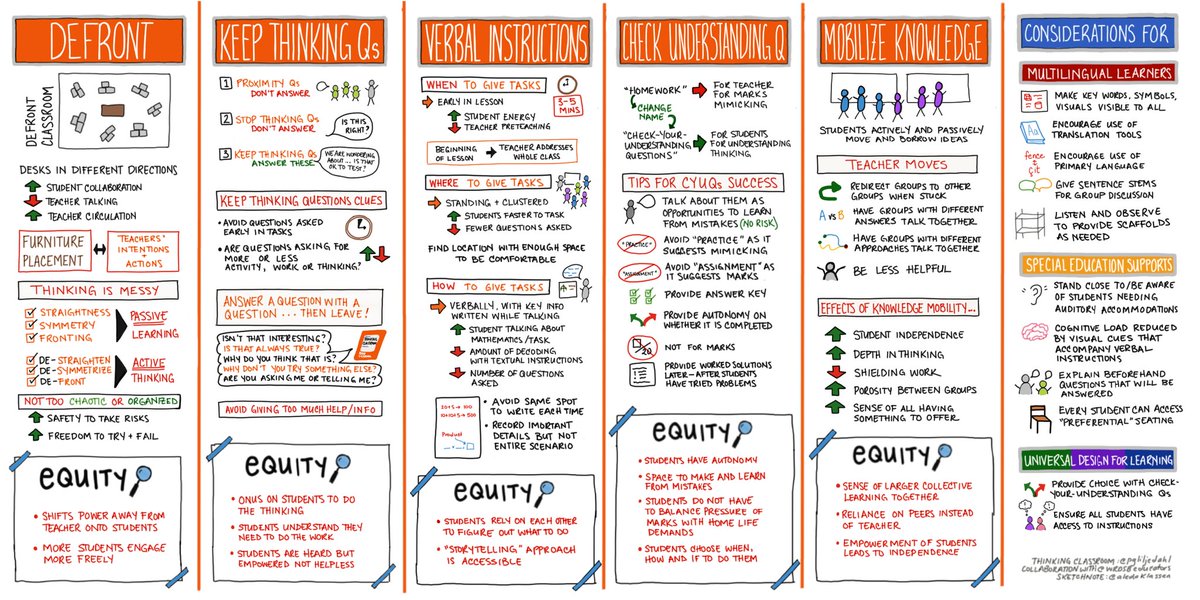 DEFRONT
DEFRONT
CLASSROOM
DESKS IN DIFFERENT DIRECTIONS
STUDENT COLLABORATION
TEACHER TALKING
TEACHER CIRCULATION
FURNITURE
PLACEMENT
TEACHERS'
INTENTIONS
+
ACTIONS
THINKING IS MESSY
STRAIGHTNESS
SYMMETRY
FRONTING
PASSIVE
LEARNING
DE-STRAIGHTEN
DE-SYMMETRIZE
DE-FRONT
ACTIVE
THINKING
NOT TOO CHAOTIC OR ORGANIZED
SAFETY TO TAKE RISKS
FREEDOM TO TRY + FAIL
EQUITY
• SHIFTS POWER AWAY FROM
TEACHER ONTO STUDENTS
• MORE STUDENTS ENGAGE
MORE FREELY
KEEP THINKING Qs
1 PROXIMITY Qs
DON'T ANSWER
2 STOP THINKING Qs
DON'T ANSWER
IS THIS
RIGHT?
3 KEEP THINKING Qs
ANSWER THESE
WE ARE WONDERING
ABOUT... IS THAT
OK TO TEST?
KEEP THINKING QUESTIONS CLUES
• AVOID QUESTIONS ASKED
EARLY IN TASKS
• ARE QUESTIONS ASKING FOR
MORE OR LESS
ACTIVITY, WORK OR THINKING?
ANSWER A QUESTION WITH A
QUESTION ... THEN LEAVE!
ISN'T THAT INTERESTING?
IS THAT ALWAYS TRUE?
WHY DO YOU THINK THAT IS?
WHY DON'T YOU TRY SOMETHING ELSE?
ARE YOU ASKING ME OR TELLING ME?
AVOID GIVING TOO MUCH HELP/INFO
EQUITY
• ONUS ON STUDENTS TO DO
THE THINKING
• STUDENTS UNDERSTAND THEY
NEED TO DO THE WORK
• STUDENTS ARE HEARD BUT
EMPOWERED NOT HELPLESS
VERBAL INSTRUCTIONS
WHEN TO GIVE TASKS
EARLY IN LESSON
3-5
MINS
STUDENT ENERGY
TEACHER PRETEACHING
BEGINNING
OF LESSON
TEACHER ADDRESSES
WHOLE CLASS
WHERE TO GIVE TASKS
STANDING + CLUSTERED
STUDENTS FASTER TO TASK
FEWER QUESTIONS ASKED
FIND LOCATION WITH ENOUGH SPACE
TO BE COMFORTABLE
HOW TO GIVE TASKS
VERBALLY, WITH KEY INFO
WRITTEN WHILE TALKING
STUDENT TALKING ABOUT
MATHEMATICS/TASK
AMOUNT OF DECODING
WITH TEXTUAL INSTRUCTIONS
NUMBER OF QUESTIONS
ASKED
Product
• AVOID SAME SPOT
TO WRITE EACH TIME
• RECORD IMPORTANT
DETAILS BUT NOT
ENTIRE SCENARIO
EQUITY
• STUDENTS RELY ON EACH OTHER
TO FIGURE OUT WHAT TO DO
• "STORYTELLING" APPROACH
IS ACCESSIBLE
CHECK UNDERSTANDING Q
"HOMEWORK"
FOR TEACHER
FOR MARKS
MIMICKING
CHANGE
NAME
"CHECK-YOUR-
UNDERSTANDING
QUESTIONS"
FOR STUDENTS
FOR UNDERSTANDING
THINKING
TIPS FOR CYUQs SUCCESS
TALK ABOUT THEM AS
OPPORTUNITIES TO LEARN
FROM MISTAKES (NO RISK)
"PRACTICE"
AVOID "PRACTICE" AS IT
SUGGESTS MIMICKING
"ASSIGNMENT"
AVOID "ASSIGNMENT" AS
IT SUGGESTS MARKS
PROVIDE ANSWER KEY
PROVIDE AUTONOMY ON
WHETHER IT IS COMPLETED
/20
NOT FOR MARKS
PROVIDE WORKED SOLUTIONS
LATER-AFTER STUDENTS
HAVE TRIED PROBLEMS
EQUITY
• STUDENTS HAVE AUTONOMY
• SPACE TO MAKE AND LEARN
FROM MISTAKES
• STUDENTS DO NOT HAVE
TO BALANCE PRESSURE OF
MARKS WITH HOME LIFE
DEMANDS
• STUDENTS CHOOSE WHEN,
HOW AND IF TO DO THEM
MOBILIZE KNOWLEDGE
STUDENTS ACTIVELY AND PASSIVELY
MOVE AND BORROW IDEAS
TEACHER MOVES
REDIRECT GROUPS TO OTHER
GROUPS WHEN STUCK
A vs B
HAVE GROUPS WITH DIFFERENT
ANSWERS TALK TOGETHER
HAVE GROUPS WITH DIFFERENT
APPROACHES TALK TOGETHER
BE LESS HELPFUL
EFFECTS OF KNOWLEDGE MOBILITY...
STUDENT INDEPENDENCE
DEPTH IN THINKING
SHIELDING WORK
POROSITY BETWEEN GROUPS
SENSE OF ALL HAVING
SOMETHING TO OFFER
EQUITY
• SENSE OF LARGER COLLECTIVE
LEARNING TOGETHER
• RELIANCE ON PEERS INSTEAD
OF TEACHER
• EMPOWERMENT OF STUDENTS
LEADS TO INDEPENDENCE
CONSIDERATIONS FOR
MULTILINGUAL LEARNERS
MAKE KEY WORDS, SYMBOLS,
VISUALS VISIBLE TO ALL
Aa
ENCOURAGE USE OF
TRANSLATION TOOLS
ENCOURAGE USE OF
PRIMARY LANGUAGE
GIVE SENTENCE STEMS
FOR GROUP DISCUSSION
LISTEN AND OBSERVE
TO PROVIDE SCAFFOLDS
AS NEEDED
SPECIAL EDUCATION SUPPORTS
STAND CLOSE TO/BE AWARE
OF STUDENTS NEEDING
AUDITORY ACCOMMODATIONS
COGNITIVE LOAD REDUCED
BY VISUAL CUES THAT
ACCOMPANY VERBAL
INSTRUCTIONS
EXPLAIN BEFOREHAND
QUESTIONS THAT WILL BE
ANSWERED
EVERY STUDENT CAN ACCESS
"PREFERENTIAL" SEATING
UNIVERSAL DESIGN FOR LEARNING
PROVIDE CHOICE WITH CHECK-
YOUR-UNDERSTANDING Qs
ENSURE ALL STUDENTS HAVE
ACCESS TO INSTRUCTIONS
THINKING CLASSROOM: @pgliljedahl
COLLABORATION WITH @wrdsbeducators
SKETCHNOTE: @aledaklassen